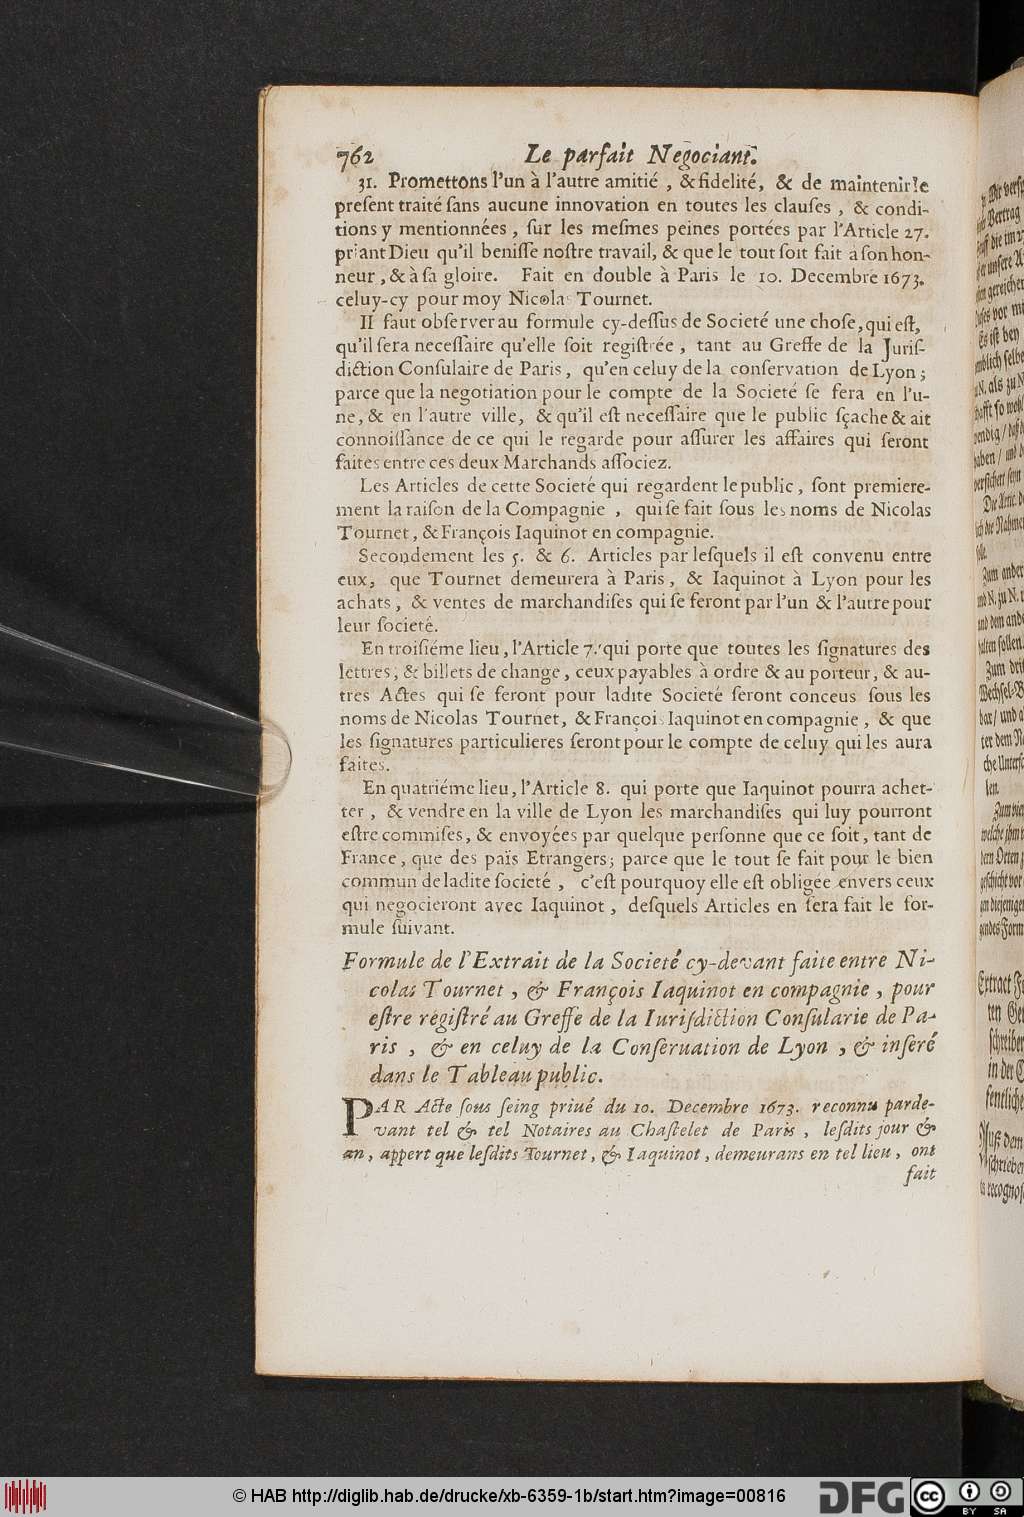 762 Le parfait Negociant.
31. Promettons l'un à l'autre amitié, & fidelité, & de maintenir le
preſent traité ſans aucune innovation en toutes les clauſes, & condi-
tions y mentionnées, ſur les meſmes peines portées par l'Article 27.
priant Dieu qu'il beniſſe noſtre travail, & que le tout ſoit fait à ſon hon-
neur, & à ſa gloire. Fait en double à Paris le 10. Decembre 1673.
celuy-cy pour moy Nicolas Tournet.
Il faut obſerver au formule cy-deſſus de Societé une choſe, qui eſt,
qu'il ſera neceſſaire qu'elle ſoit regiſtrée, tant au Greffe de la Juriſ-
diction Conſulaire de Paris, qu'en celuy de la conſervation de Lyon;
parce que la negotiation pour le compte de la Societé ſe fera en l'u-
ne, & en l'autre ville, & qu'il eſt neceſſaire que le public ſçache & ait
connoiſſance de ce qui le regarde pour aſſurer les affaires qui ſeront
faites entre ces deux Marchands aſſociez.
Les Articles de cette Societé qui regardent le public, ſont premiere-
ment la raiſon de la Compagnie, qui ſe fait ſous les noms de Nicolas
Tournet, & François Iaquinot en compagnie.
Secondement les 5. & 6. Articles par leſquels il eſt convenu entre
eux, que Tournet demeurera à Paris, & Iaquinot à Lyon pour les
achats, & ventes de marchandiſes qui ſe feront par l'un & l'autre pour
leur ſocieté.
En troiſiéme lieu, l'Article 7. qui porte que toutes les ſignatures des
lettres, & billets de change, ceux payables à ordre & au porteur, & au-
tres Actes qui ſe feront pour ladite Societé ſeront conceus ſous les
noms de Nicolas Tournet, & François Iaquinot en compagnie, & que
les ſignatures particulieres ſeront pour le compte de celuy qui les aura
faites.
En quatriéme lieu, l'Article 8. qui porte que Iaquinot pourra achet-
ter, & vendre en la ville de Lyon les marchandiſes qui luy pourront
eſtre commiſes, & envoyées par quelque perſonne que ce ſoit, tant de
France, que des païs Etrangers; parce que le tout ſe fait pour le bien
commun de ladite ſocieté, c'eſt pourquoy elle eſt obligée envers ceux
qui negocieront avec Iaquinot, deſquels Articles en ſera fait le for-
mule ſuivant.
Formule de l'Extrait de la Societé cy-devant faite entre Ni-
colas Tournet, & François Iaquinot en compagnie, pour
eſtre regiſtré au Greffe de la Iuriſdiction Conſularie de Pa-
ris, & en celuy de la Conſeruation de Lyon, & inſeré
dans le Tableau public.
PAR Acte ſous ſeing priué du 10. Decembre 1673. reconnu parde-
vant tel & tel Notaires au Chaſtelet de Paris, leſdits jour &
an, appert que leſdits Tournet, & Iaquinot, demeurans en tel lieu, ont
fait
© HAB http://diglib.hab.de/drucke/xb-6359-1b/start.htm?image=00816
DFG
cc BY SA